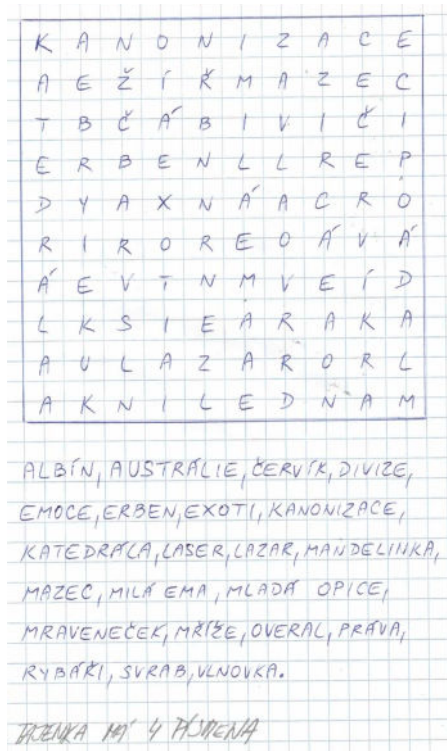 K A N O N I Z A C E
A E Ž Í Ř M A Z E C
T B Č Á B I V I Č I
E R B E N L L R E P
D Y A X N Á A C R O
R I R O R E O Á V Á
Á E V T N M V E Í D
L K S I E A R A K A
A U L A Z A R O R L
A K N I L E D N A M
ALBÍN, AUSTRÁLIE, ČERVÍK, DIVIZE,
EMOCE, ERBEN, EXOTI, KANONIZACE,
KATEDRÁLA, LASER, LAZAR, MANDELINKA,
MAZEC, MILÁ EMA, MLADÁ OPICE,
MRAVENEČEK, MŘÍŽE, OVERAL, PRÁVA,
RYBÁŘI, SVRAB, VLNOVKA.
TAJENKA MÁ 4 PÍSMENA